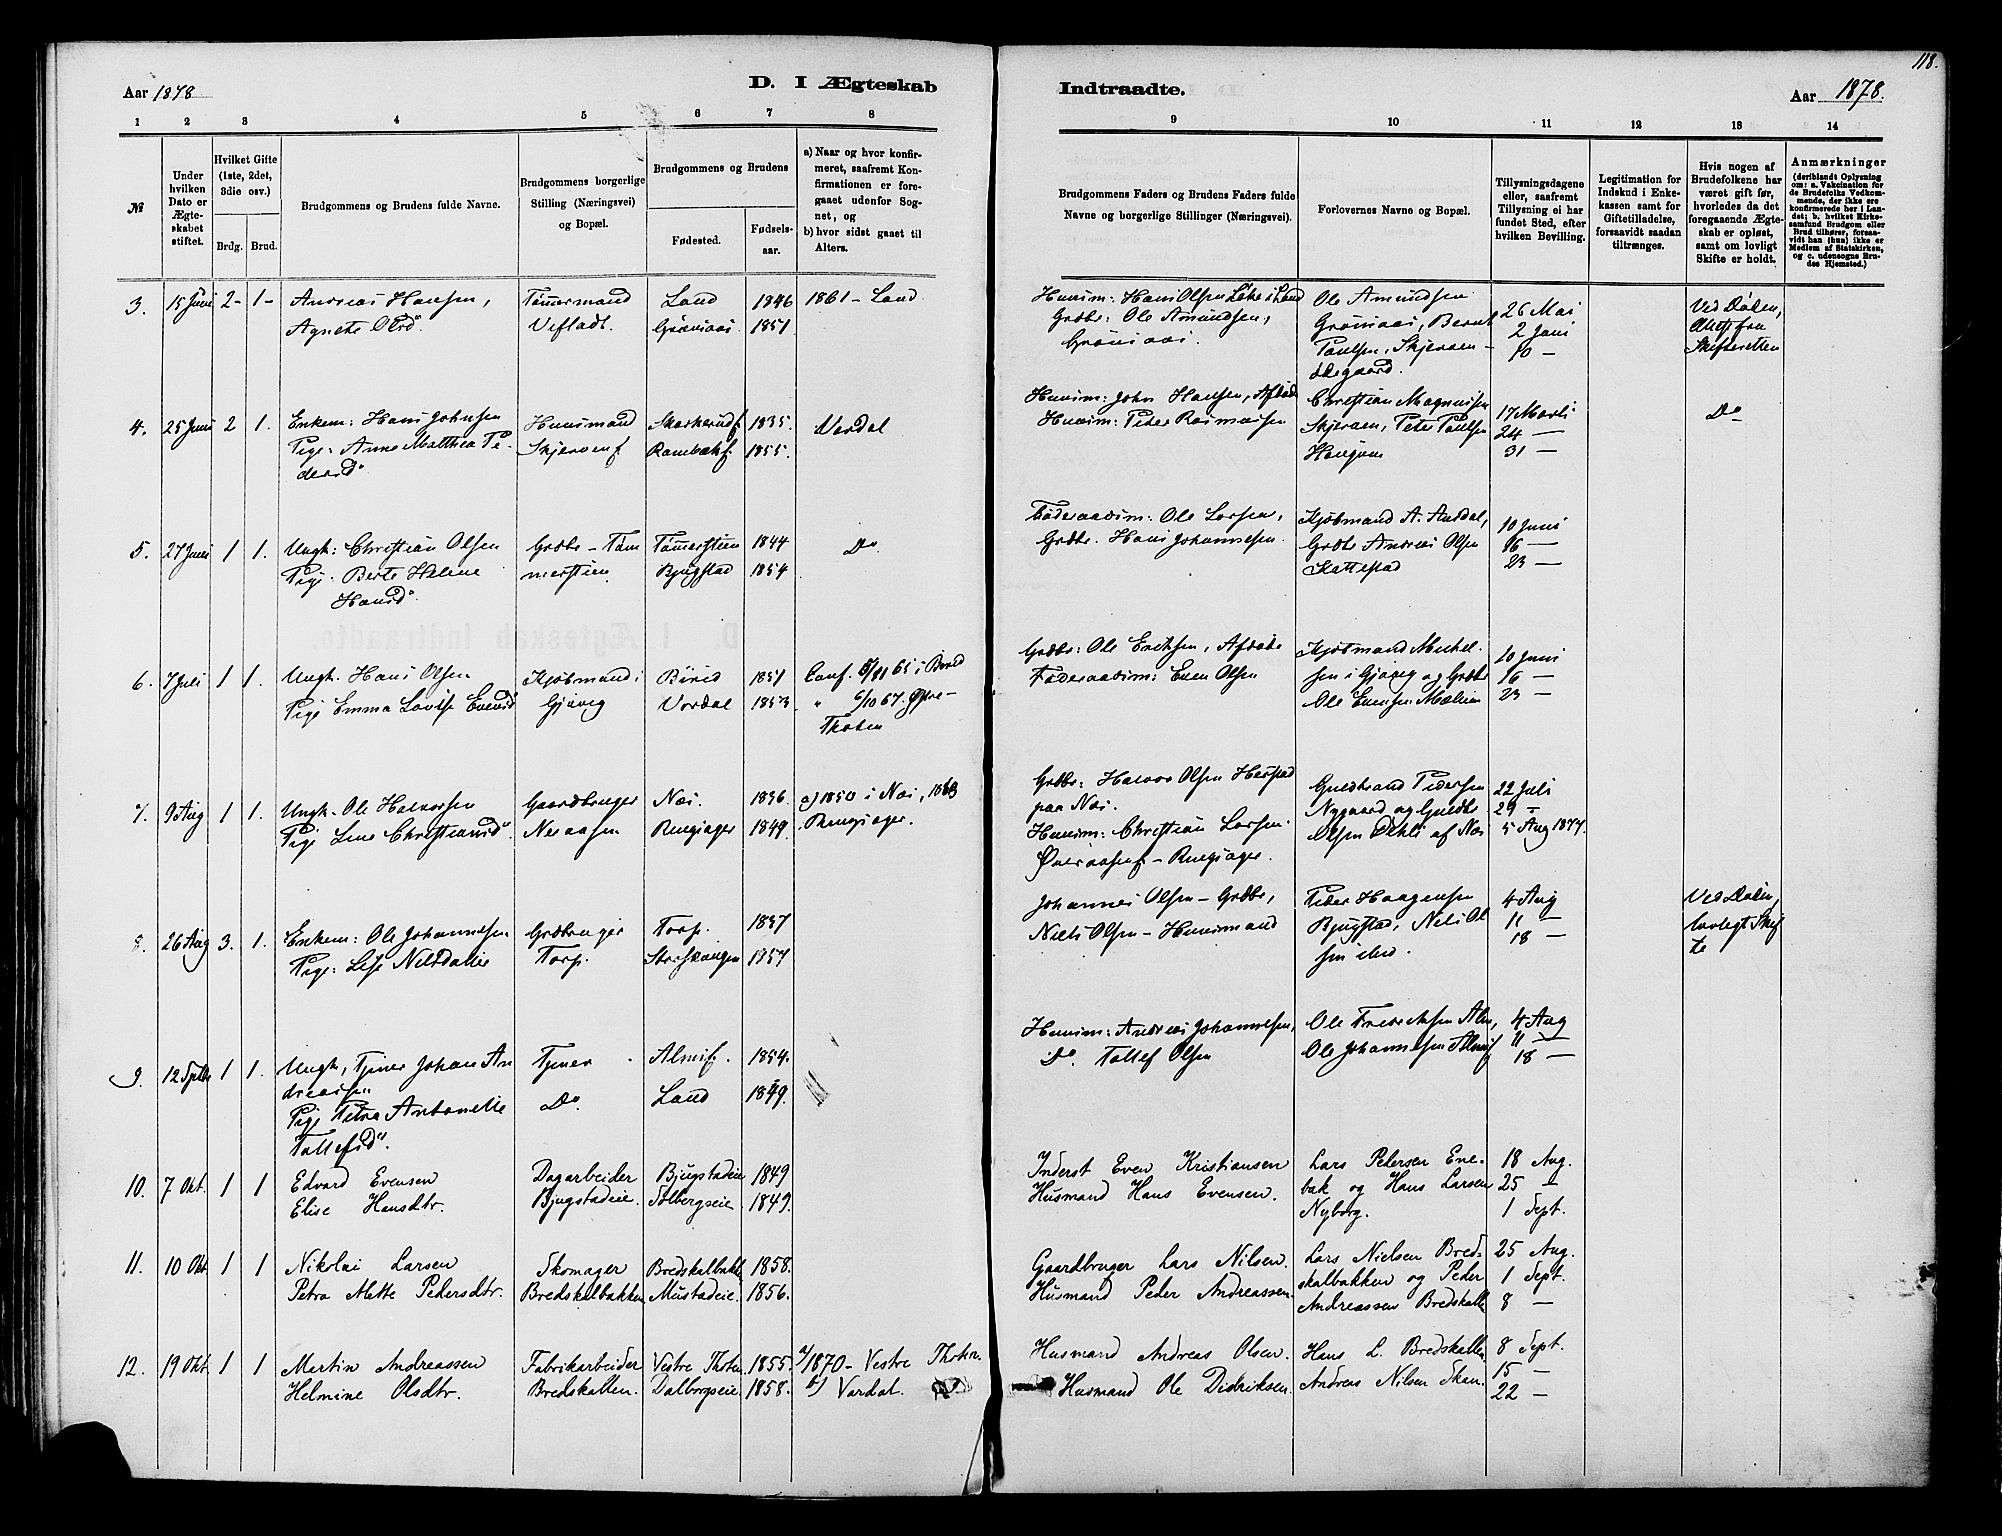 118.
Aar 1878
D. I Ægteskab
Indtraadte.
Aar 1878.
1 2 3 4 5 6 7 8 9 10 11 12 13 14
№
Under hvilken Dato er Ægteskabet stiftet.
Hvilket Gifte (1ste, 2det, 3die osv.)
Brdg. Brud.
Brudgommens og Brudens fulde Navne.
Brudgommens borgerlige Stilling (Næringsvei) og Bopæl.
Brudgommens og Brudens
Fødested.
Fødselsaar.
a) Naar og hvor konfirmeret, saafremt Konfirmationen er foregaaet udenfor Sognet, og
b) hvor sidst gaaet til Alters.
Brudgommens Faders og Brudens Faders fulde Navne og borgerlige Stillinger (Næringsvei).
Forlovernes Navne og Bopæl.
Tillysningsdagene eller, saafremt Tillysning ei har fundet Sted, efter hvilken Bevilling.
Legitimation for Indskud i Enkekassen samt for Giftetilladelse, forsaavidt saadan tiltrænges.
Hvis nogen af Brudefolkene har været gift før, hvorledes da det foregaaende Ægteskab er opløst, samt om lovligt Skifte er holdt.
Anmærkninger
(deriblandt Oplysning om: a. Vakcination for de Brudefolks Vedkommende, der ikke ere konfirmerede her i Landet; b. hvilket Kirkesamfund Brudgom eller Brud tilhører, forsaavidt han (hun) ikke er Medlem af Statskirken, og c. udensogns Brudes Hjemsted.)
3. 15 Juni 2- 1- Andreas Hansen, Tømermand Land 1846 1861 - Land Husm: Hans Olsen i Land Ole Amundsen 26 Mai Ved Døden,
Agnete Olsd. Vefladt. Grønaas. 1851 Grdbr: Ole Amundsen, Grønaas, Bernt 2 Juni Attest fra
Grønaas. Paulsen, 10 - Skifteretten
degaard.
4. 25 Juni 2 1. Enkem: Hans Johnsen Husmand 1835. Vardal Husm: John Hansen, Afdøde Christian Magnussen 17 Marts Do
Pige: Anne Matthea Pe- 1855. Husm: Peder Rasmussen Skjerven, Peter Paulsen 24 -
dersd. 31 -
5. 27 Juni 1 1. Ungk: Christian Olsen Grdbr - Tøm Tømerstien 1844 Do. Føderaadsm: Ole Larsen, Kjøbmand A. 10 Juni
Pige. Berte Helene merstien Bjugstad 1854 Grdbr. Hans Johannesen. Grdbr Andreas Olsen 16 -
Hansd. Kattestad 23 -
6. 7 Juli 1 1. Ungk. Hans Olsen Kjøbmand i Birid 1851 Conf. 65 i Birid Grdbr: Ole Eriksen, Afdøde Kjøbmand Mickel- 10 Juni
Pige Emma Lovise Evensd Gjøvig Vardal 1853. " 6/10 67. Føderaadsm: Even Olsen sen i Gjøvig og Grdbr 16 -
Thoten Ole Evensen Mælum 23 -
7. 9 Aug 1 1. Ungk. Ole Halvorsen Gaardbruger Næs. 1836. a) 1850 i Næs, Grdbr: Halvor Olsen Herstad Guldbrand Pedersen 22 Juli
Pige Line Christiansd. Neraasen Ringsager 1849. Ringsager. paa Næs. Nygaard og Guldbr 29 -
Husm: Christian Larsen Olsen Dehli af Næs 5 Aug 1877.
Øveraasen - Ringsager.
8. 26 Aug 3. 1. Enkem: Ole Johannesen Grdbruger Torp. 1837 Johannes Olsen - Grdbr, Peder Haagensen 4 Aug Ved Døden,
Pige: Lise Nilsdatter Torp. 1857 Niels Olsen - Husmand Bjugstad, Nils Ol 11 - lovligt Skif
sen ibid. 18 - te
9. 12 Septbr 1 1. Ungk, Tjener Johan An Tjener Alm 1854. Husm: Andreas Johannesen, Ole Fredriksen Alm, 4 Aug
dreasen Do. Tollef Olsen Ole Johannesen 11 -
Pige Petra Antonette Do. Land 1849. 18 -
Tollefsd.
10. 7 Okt. 1 1 Edvard Evensen Dagarbeider Bjugstadeie 1849 Inderst Even Kristiansen Lars Pedersen Ene- 18 Aug.
Elise Hansdtr. Bjugstadeie. Solbergseie 1849. Husmand Hans Evensen. bak og Hans Larsen 25 -
Nyborg. 1 Sept.
11. 10 Okt 1 1 Nikolai Larsen Skomager Bredskalbakk 1858. Gaardbruger Lars Nilsen. Lars Nielsen Bred- 25 Aug.
Petra Mette Pedersdtr. Bredskalbakken Mustadeie. 1856. Husmand Peder Andreassen. skalbakken og Peder 1 Sept.
Andreassen Bredskallen 8 -
12. 19 Okt. 1 1 Martin Andreassen Fabrikarbeider Vestre Thoten. 1855. a) 1870 - Vestre Thoten. Husmand Andreas Olsen. Hans L. Bredskallen 8 Sept.
Helmine Olsdtr. Bredskallen. Dalborgseie. 1858. b) Vardal. Husmand Ole Didriksen. Andreas Nilsen Skau. 15 -
22 -